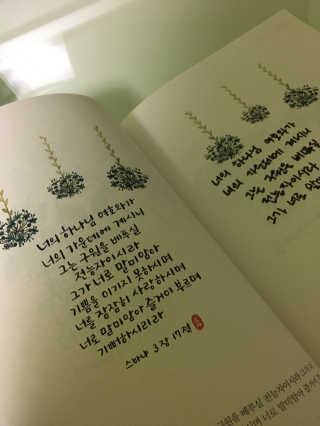 너의 하나님 여호와가
너의 가운데에 계시니
그는 구원을 베푸실
전능자이시라
그가 너로 말미암아
기쁨을 이기지 못하시며
너를 잠잠히 사랑하시며
너로 말미암아 즐거이 부르며
기뻐하시리라
스바냐 3장 17절
너의 하나님 여호와가
너의 가운데에 계시니
그는 구원을 베푸실
전능자이시라
그가 너로 말
구원을 베푸실 전능자이시라 그가
너로 말미암아